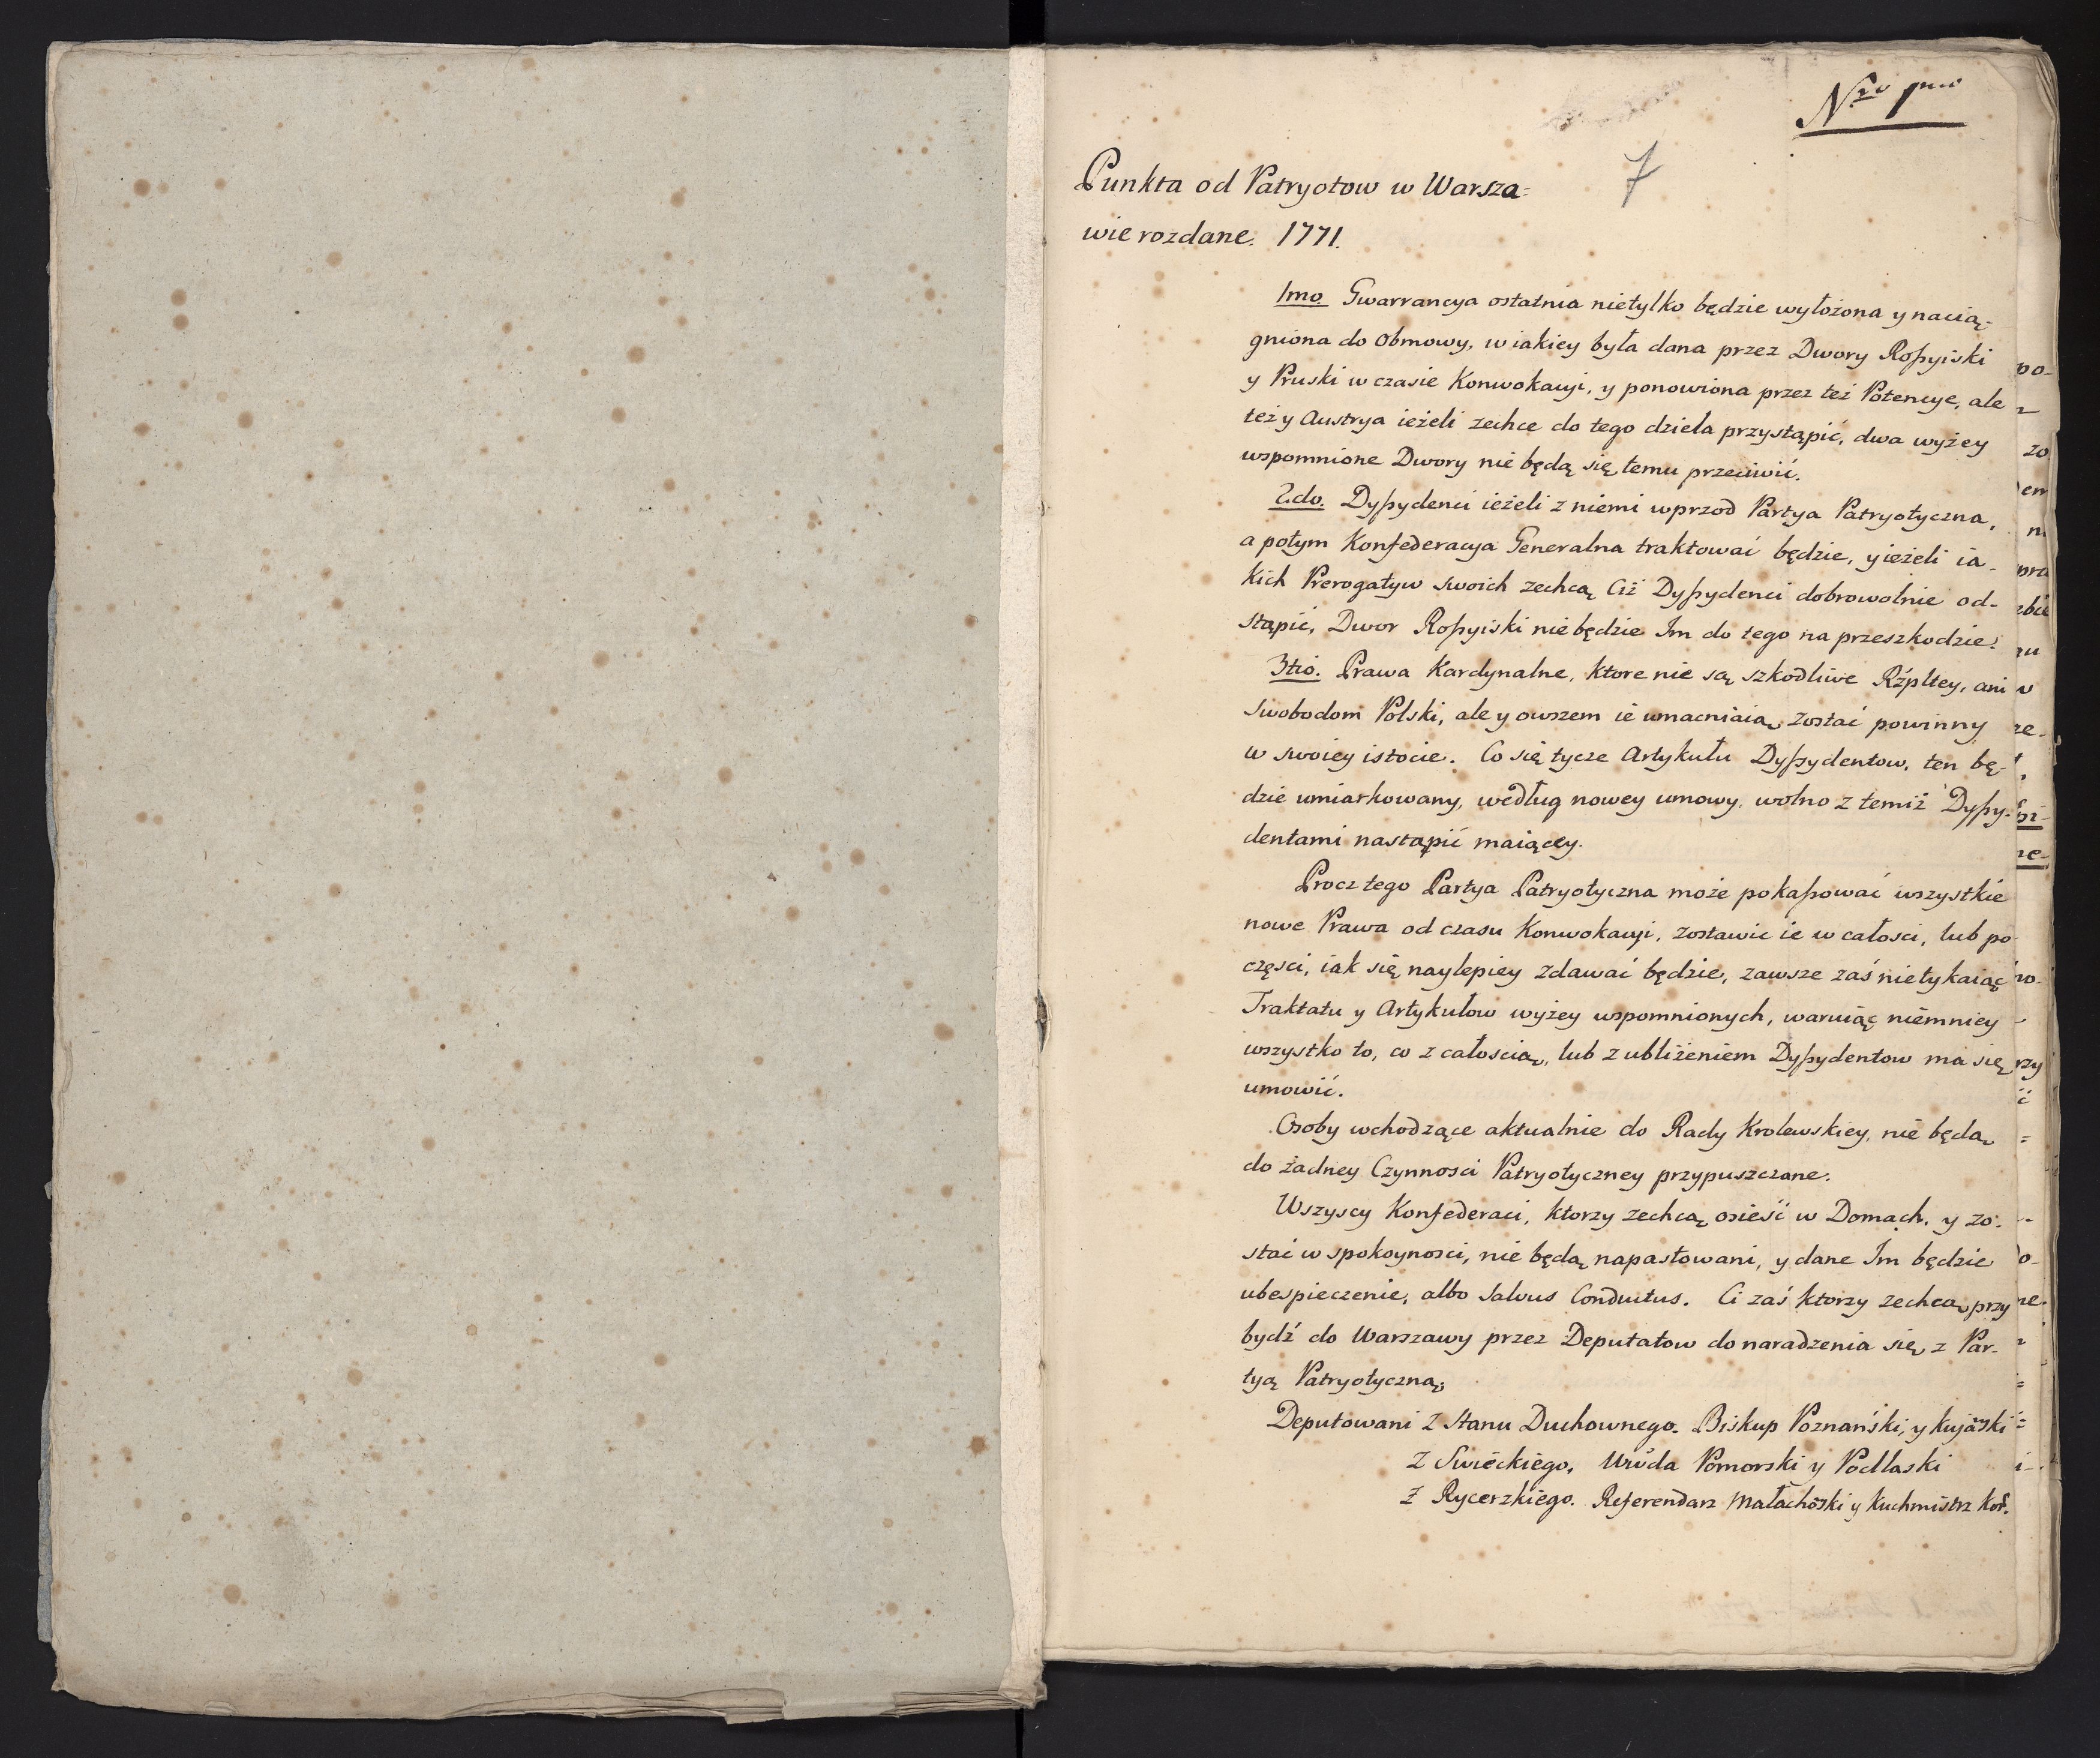 Nro 1mo
7
Punkta od Patryotow w Warsza=
wie rozdane. 1771.
1mo. Gwarrancya ostatnia nietylko będzie wyłożona y nacią-
gniona do obmowy, w iakiey była dana przez Dwory Roßyiski
y Pruski w czasie Konwokacyi, y ponowiona przez też Potencye, ale
też y Austrya ieżeli zechce do tego dzieła przystąpić, dwa wyżey
wspomnione Dwory nie będą się temu przeciwić.
2do. Dyßydenci ieżeli z niemi wprzod Partya Patryotyczna,
a potym Konfederacya Generalna traktować będzie, y ieżeli ia-
kich Prerogatyw swoich zechcą Ciż Dyßydenci dobrowolnie od-
stąpić, Dwor Roßyiski nie będzie Im do tego na przeszkodzie.
3tio. Prawa Kardynalne, ktore nie są szkodliwe Rzpltey, ani
swobodom Polski, ale y owszem ie umacniaią, zostać powinny
w swoiey istocie. Co się tycze Artykułu Dyßydentow, ten bę-
dzie umiarkowany, według nowey umowy, wolno z temiż Dyßy-
dentami nastąpić maiącey.
Procz tego Partya Patryotyczna może pokaßować wszystkie
nowe Prawa od czasu Konwokacyi, zostawić ie w całosci, lub po
częsci, iak się naylepiey zdawać będzie, zawsze zaś nietykaiąc
Traktatu y Artykułow wyżey wspomnionych, waruiąc niemniey
wszystko to, co z całoscią, lub z ubliżeniem Dyßydentow ma się
umowić.
Osoby wchodzące aktualnie do Rady Krolewskiey, nie będą
do żadney Czynnosci Patryotyczney przypuszczane.
Wszyscy Konfederaci, ktorzy zechcą osieść w Domach, y zo-
stać w spokoynosci, nie będą napastowani, y dane Im będzie
ubespieczenie, albo Salvus Conductus. Ci zaś ktorzy zechcą przy
bydź do Warszawy przez Deputatow do naradzenia się z Par-
tyą Patryotyczną.
Deputowani z Stanu Duchownego. Biskup Poznański, y Kujaski
Z Swieckiego, Wwda Pomorski y Podlaski
Z Rycerzkiego. Referendarz Małachoski y Kuchmistrz Kor.